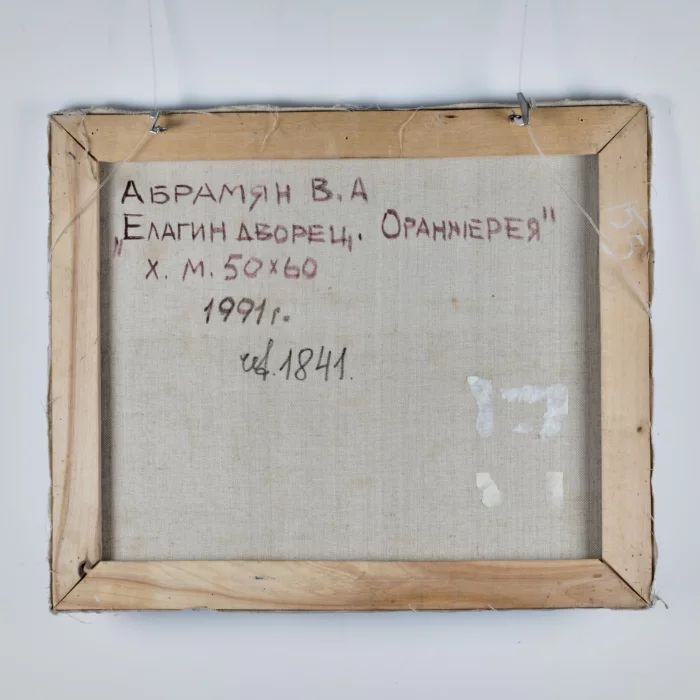 АБРАМЯН В.А
„ЕЛАГИН ДВОРЕЦ. ОРАНЖЕРЕЯ"
Х. М. 50х60
1991г.
1841.
55